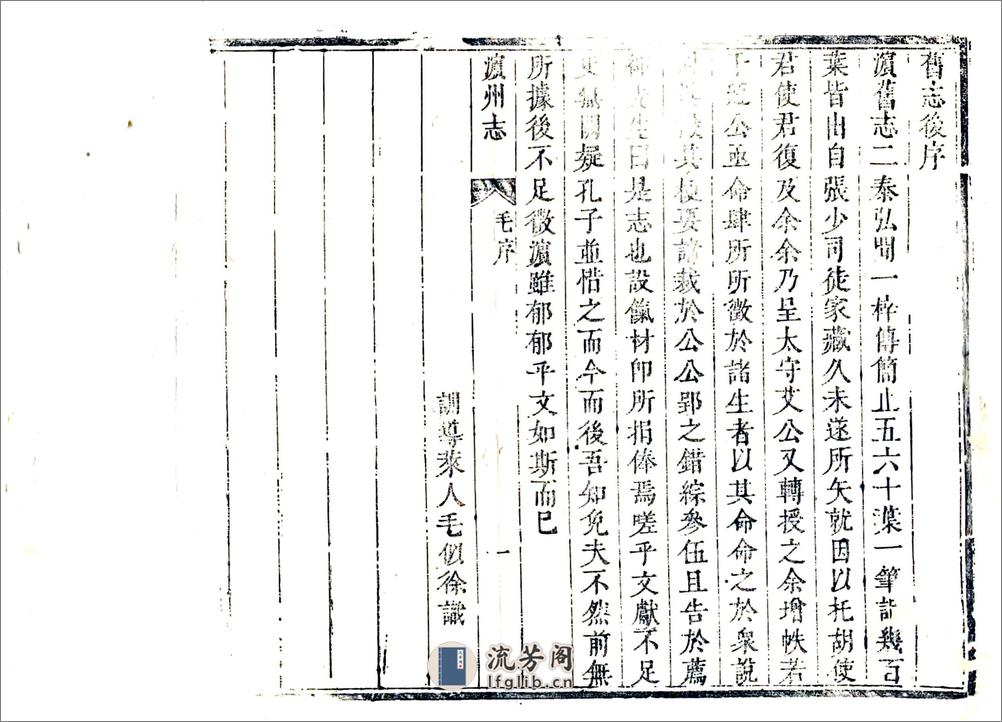 舊志後序
濵舊志二泰弘間一梓傳簡止五六十葉一筆計幾百
葉皆出自張少司徒家藏久未遂所矢就因以托胡使
君使君復及余余乃呈太守艾公又轉授之余增帙若
干 公亟命肆所所徵於諸生者以其命命之於衆說
其 要 裁於公公郢之錯綜參伍且告於薦
先生曰是志也設儀材卽所捐俸焉嗟乎文獻不足
疑孔子並惜之而今而後吾知免夫不然前無
所據後不足徵濵雖郁郁乎文如斯而已
訓導萊人毛似徐識
濵州志
毛序
一
流芳阁
lfglib.cn